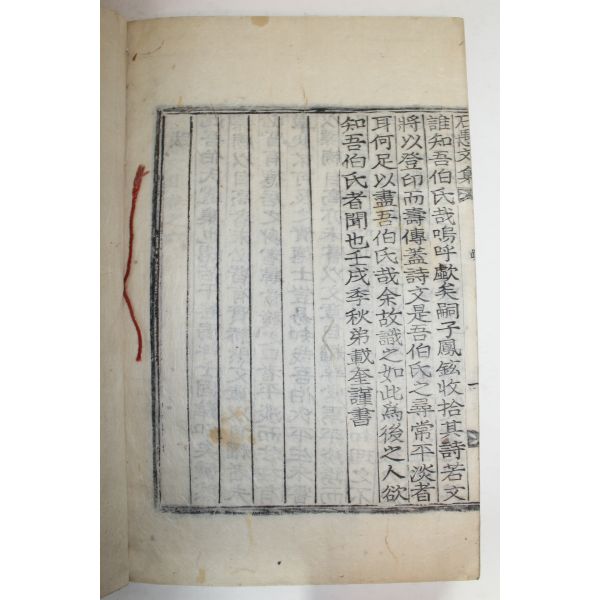 誰知吾伯氏哉嗚呼歔矣嗣子鳳鉉收拾其詩若文
將以登印而壽傳蓋詩文是吾伯氏之尋常平淡者
耳何足以盡吾伯氏哉余故識之如此為後之人欲
知吾伯氏者聞也壬戌季秋弟載奎謹書